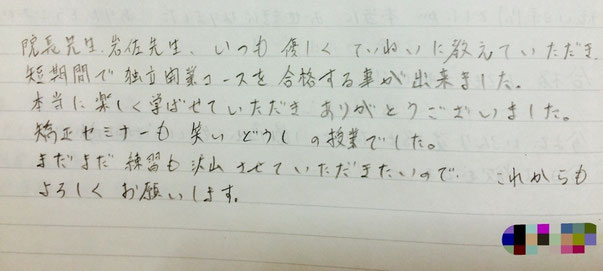 院長先生、岩佐先生、いつも優しくていねいに教えていただき、
短期間で独立開業コースを合格する事が出来ました。
本当に楽しく学ばせていただきありがとうございました。
矯正セミナーも笑いどうしの授業でした。
まだまだ練習も沢山させていただきたいので、これからも
よろしくお願いします。